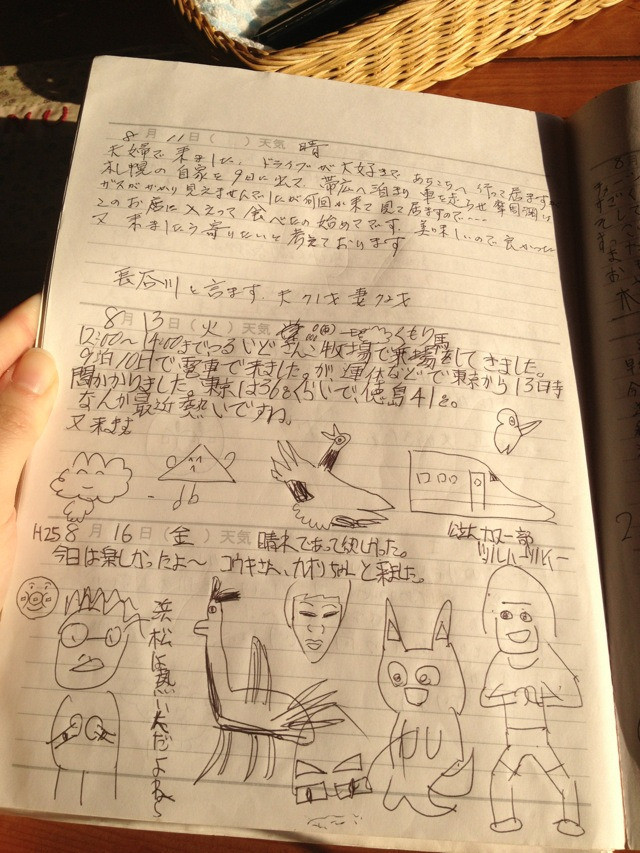 8月 11日( )天気 晴
夫婦で来ました、ドライブが大好きで あちこちへ行って居ますが
札幌の自家を9日に出て、帯広へ泊まり 車を走らせ 摩周湖は
ガスがかかり見えませんでしたが何回か来て見て居ますので・・・
このお店に入って食べたの始めてです。美味しいので良かった
又 来ましたら寄りたいと考えております
長谷川と言ます. 夫71才 妻72才
8月 13日(火)天気 くもり
12:00〜14:00まで つるいど 牧場で乗馬をしてきました。
9泊10日で電車で来ました。が、運休などで東京から13日時
間かかりました。東京は36℃ぐらいで徳島41℃。
なんか最近熱いですね。
又来ます
H25 8月 16日(金)天気 晴れであって欲しかった。
今日は楽しかったよ〜 コウキさん、カオリちゃんと来ました。
浜松は熱いんだよね〜